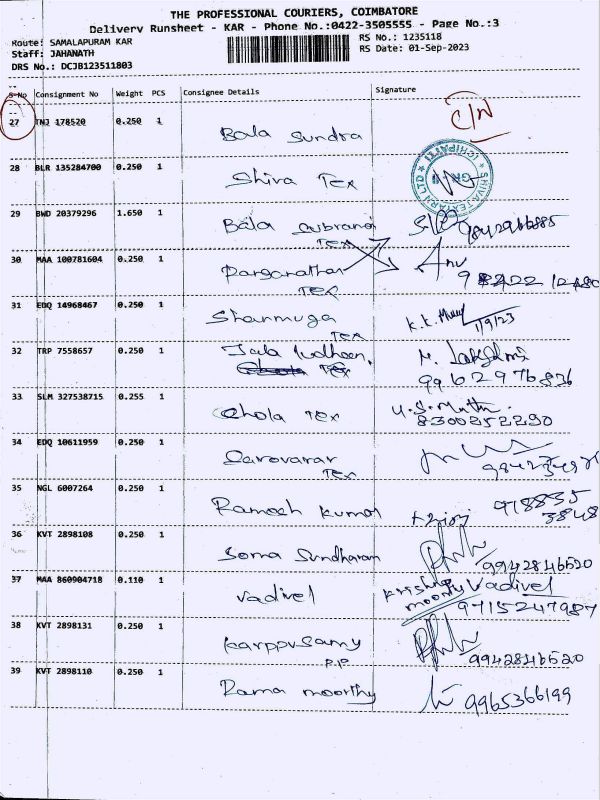 THE PROFESSIONAL COURIERS, COIMBATORE
Delivery Runsheet - KAR - Phone No.:0422-3505555 - Page No.:3
Route: SAMALAPURAM KAR
RS No.: 1235118
Staff: JAHANATH
RS Date: 01-Sep-2023
DRS No.: DCJB123511803
S-No Consignment No Weight PCS Consignee Details Signature
27 TNJ 178520 0.250 1 Bala Sundra
28 BLR 135284700 0.250 1 Shiva Tex
SHIVA TEXYARN LTD
29 BWD 20379296 1.650 1 Bala Subramani Tex
30 MAA 100781604 0.250 1 Tex
31 EDQ 14968467 0.250 1 Shanmuga Tex 1/9/23
32 TRP 7558657 0.250 1 M. Lakshmi
9962976836
33 SLM 327538715 0.255 1 Chola Tex U.S. Muthu
8300252290
34 EDQ 10611959 0.250 1 Tex
35 NGL 6007264 0.250 1 Ramesh Kumar 918835
3848
36 KVT 2898108 0.250 1 Soma Sundharam 9942846520
37 MAA 860904718 0.110 1 Vadivel Krishna moorthy Vadivel
9715247987
38 KVT 2898131 0.250 1 Karppusamy 9942846520
39 KVT 2898110 0.250 1 Rama moorthy 9965366199